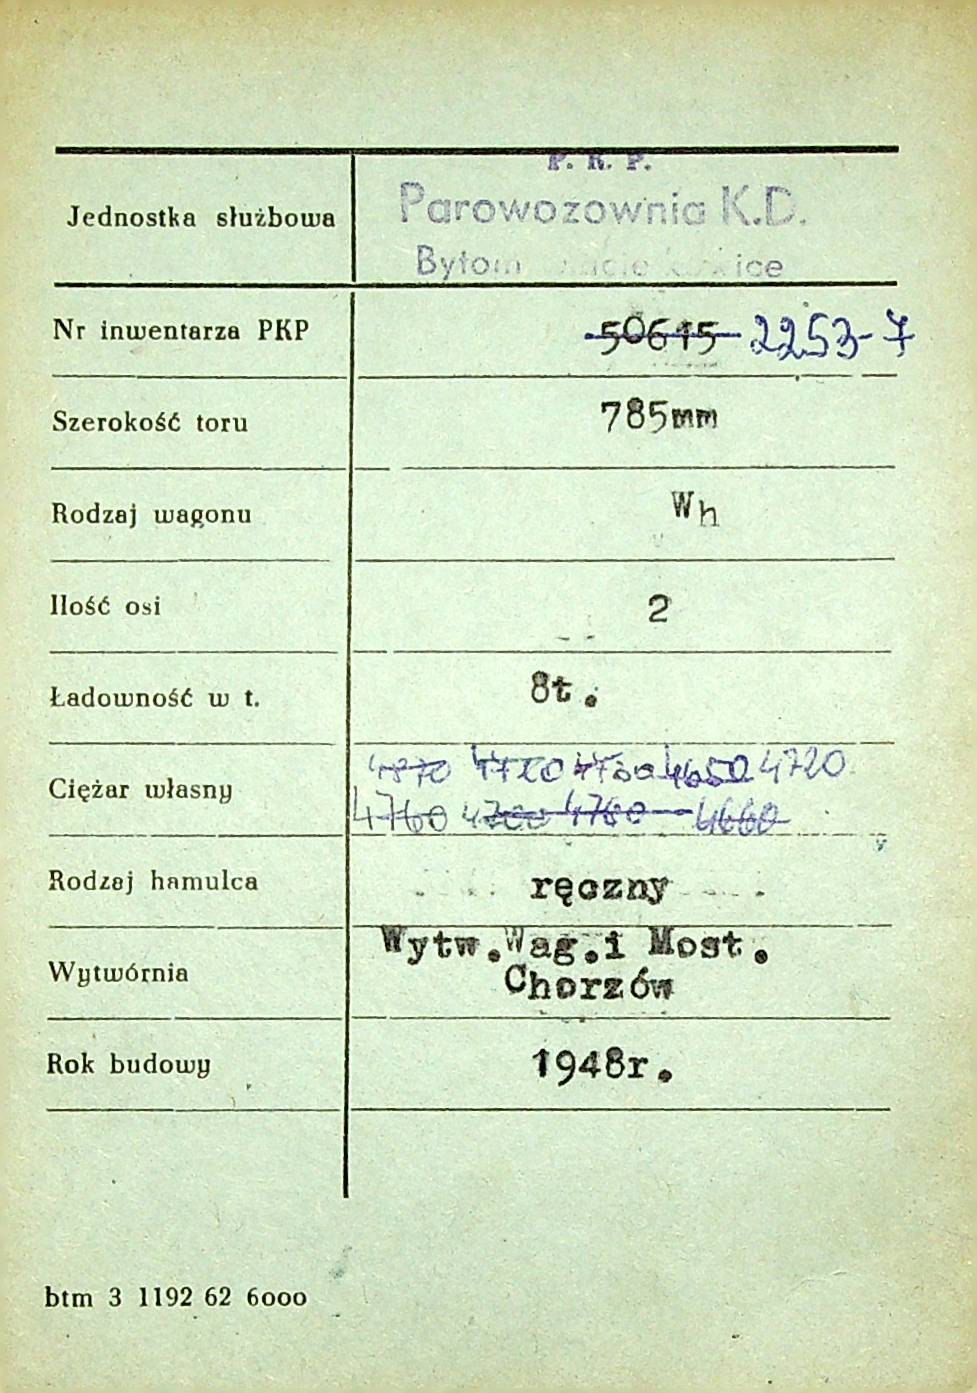 P. K. P.
Jednostka służbowa Parowozownia K.D.
Bytom
Nr inwentarza PKP 50615 2253-7
Szerokość toru 785mm
Rodzaj wagonu Wh
Ilość osi 2
Ładowność w t. 8t.
4870 4720 4650 4720
Ciężar własny
4760 4700 4760 4660
Rodzaj hamulca ręczny
Wytw.Wag.i Most.
Wytwórnia
Chorzów
Rok budowy 1948r.
btm 3 1192 62 6000